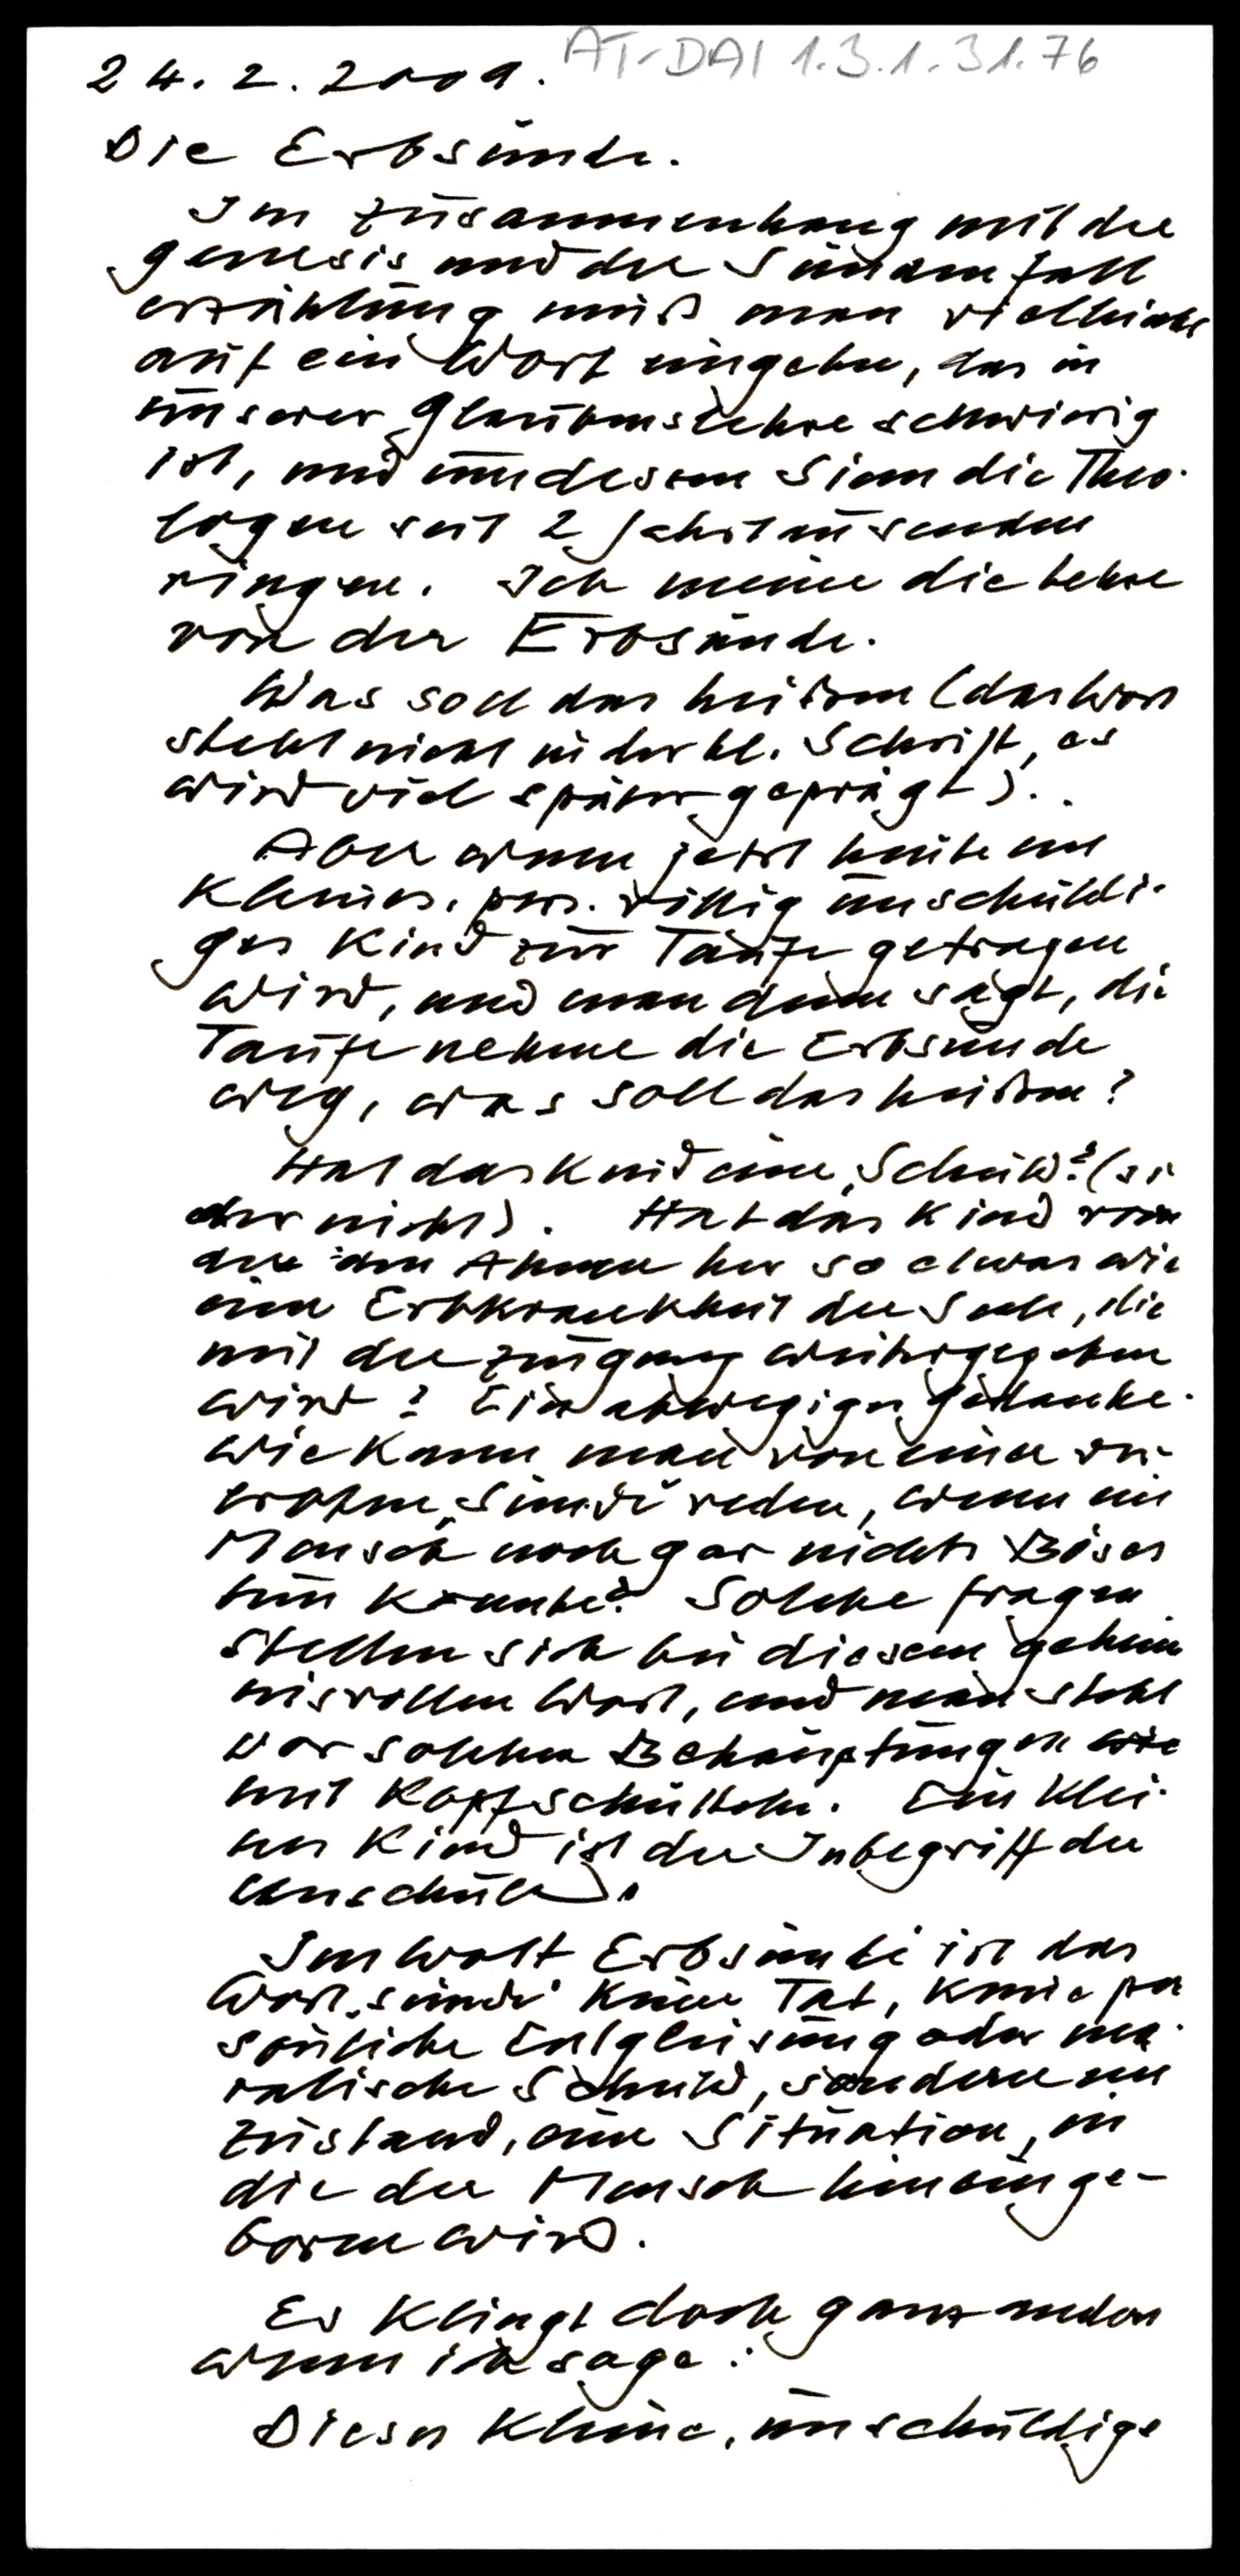 AT-DAI 1.3.1.31.76
24.2.2009.
Die Erbsünde.
Im Zusammenhang mit der
Genesis und der Sündenfall
erzählung muß man vielleicht
auf ein Wort eingehen, das in
unserer Glaubenslehre schwierig
ist, und um dessen Sinn die Theo-
logen seit 2 Jahrtausenden
ringen. Ich meine die Lehre
von der Erbsünde.
Was soll das heißen (das Wort
steht nicht in der hl. Schrift, es
wird viel später geprägt).
Aber wenn jetzt heute ein
kleines, pers. völlig unschuldi-
ges Kind zur Taufe getragen
wird, und man dann sagt, die
Taufe nehme die Erbsünde
weg, was soll das heißen?
Hat das Kind eine Schuld? (si
cher nicht). Hat das Kind von
den Ahnen her so etwas wie
eine Erbkrankheit der Seele, die
mit der Zeugung weitergegeben
wird? Ein abwegiger Gedanke.
Wie kann man von einer er-
erbten „Sünde" reden, wenn ein
Mensch noch gar nichts Böses
tun konnte? Solche Fragen
stellen sich bei diesem geheim
nisvollen Wort, und man steht
vor solchen Behauptungen
mit Kopfschütteln. Ein klei-
nes Kind ist der Inbegriff der
Unschuld.
Im Wort Erbsünde ist das
Wort „Sünde" keine Tat, keine per
sönliche Entgleisung oder mo-
ralische Schuld, sondern ein
Zustand, eine Situation, in
die der Mensch hineinge-
boren wird.
Es klingt doch ganz anders
wenn ich sage:
Dieses kleine, unschuldige